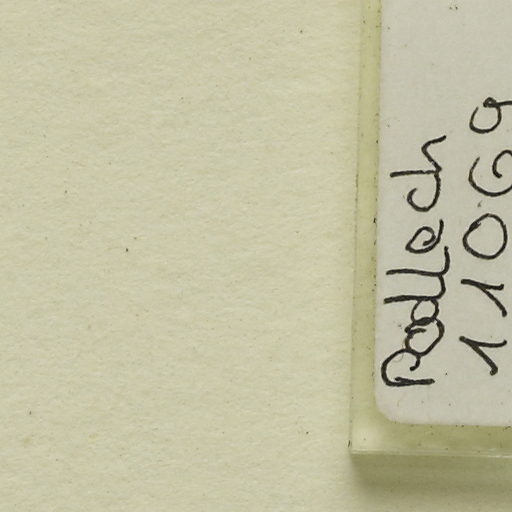 Podlech
11069